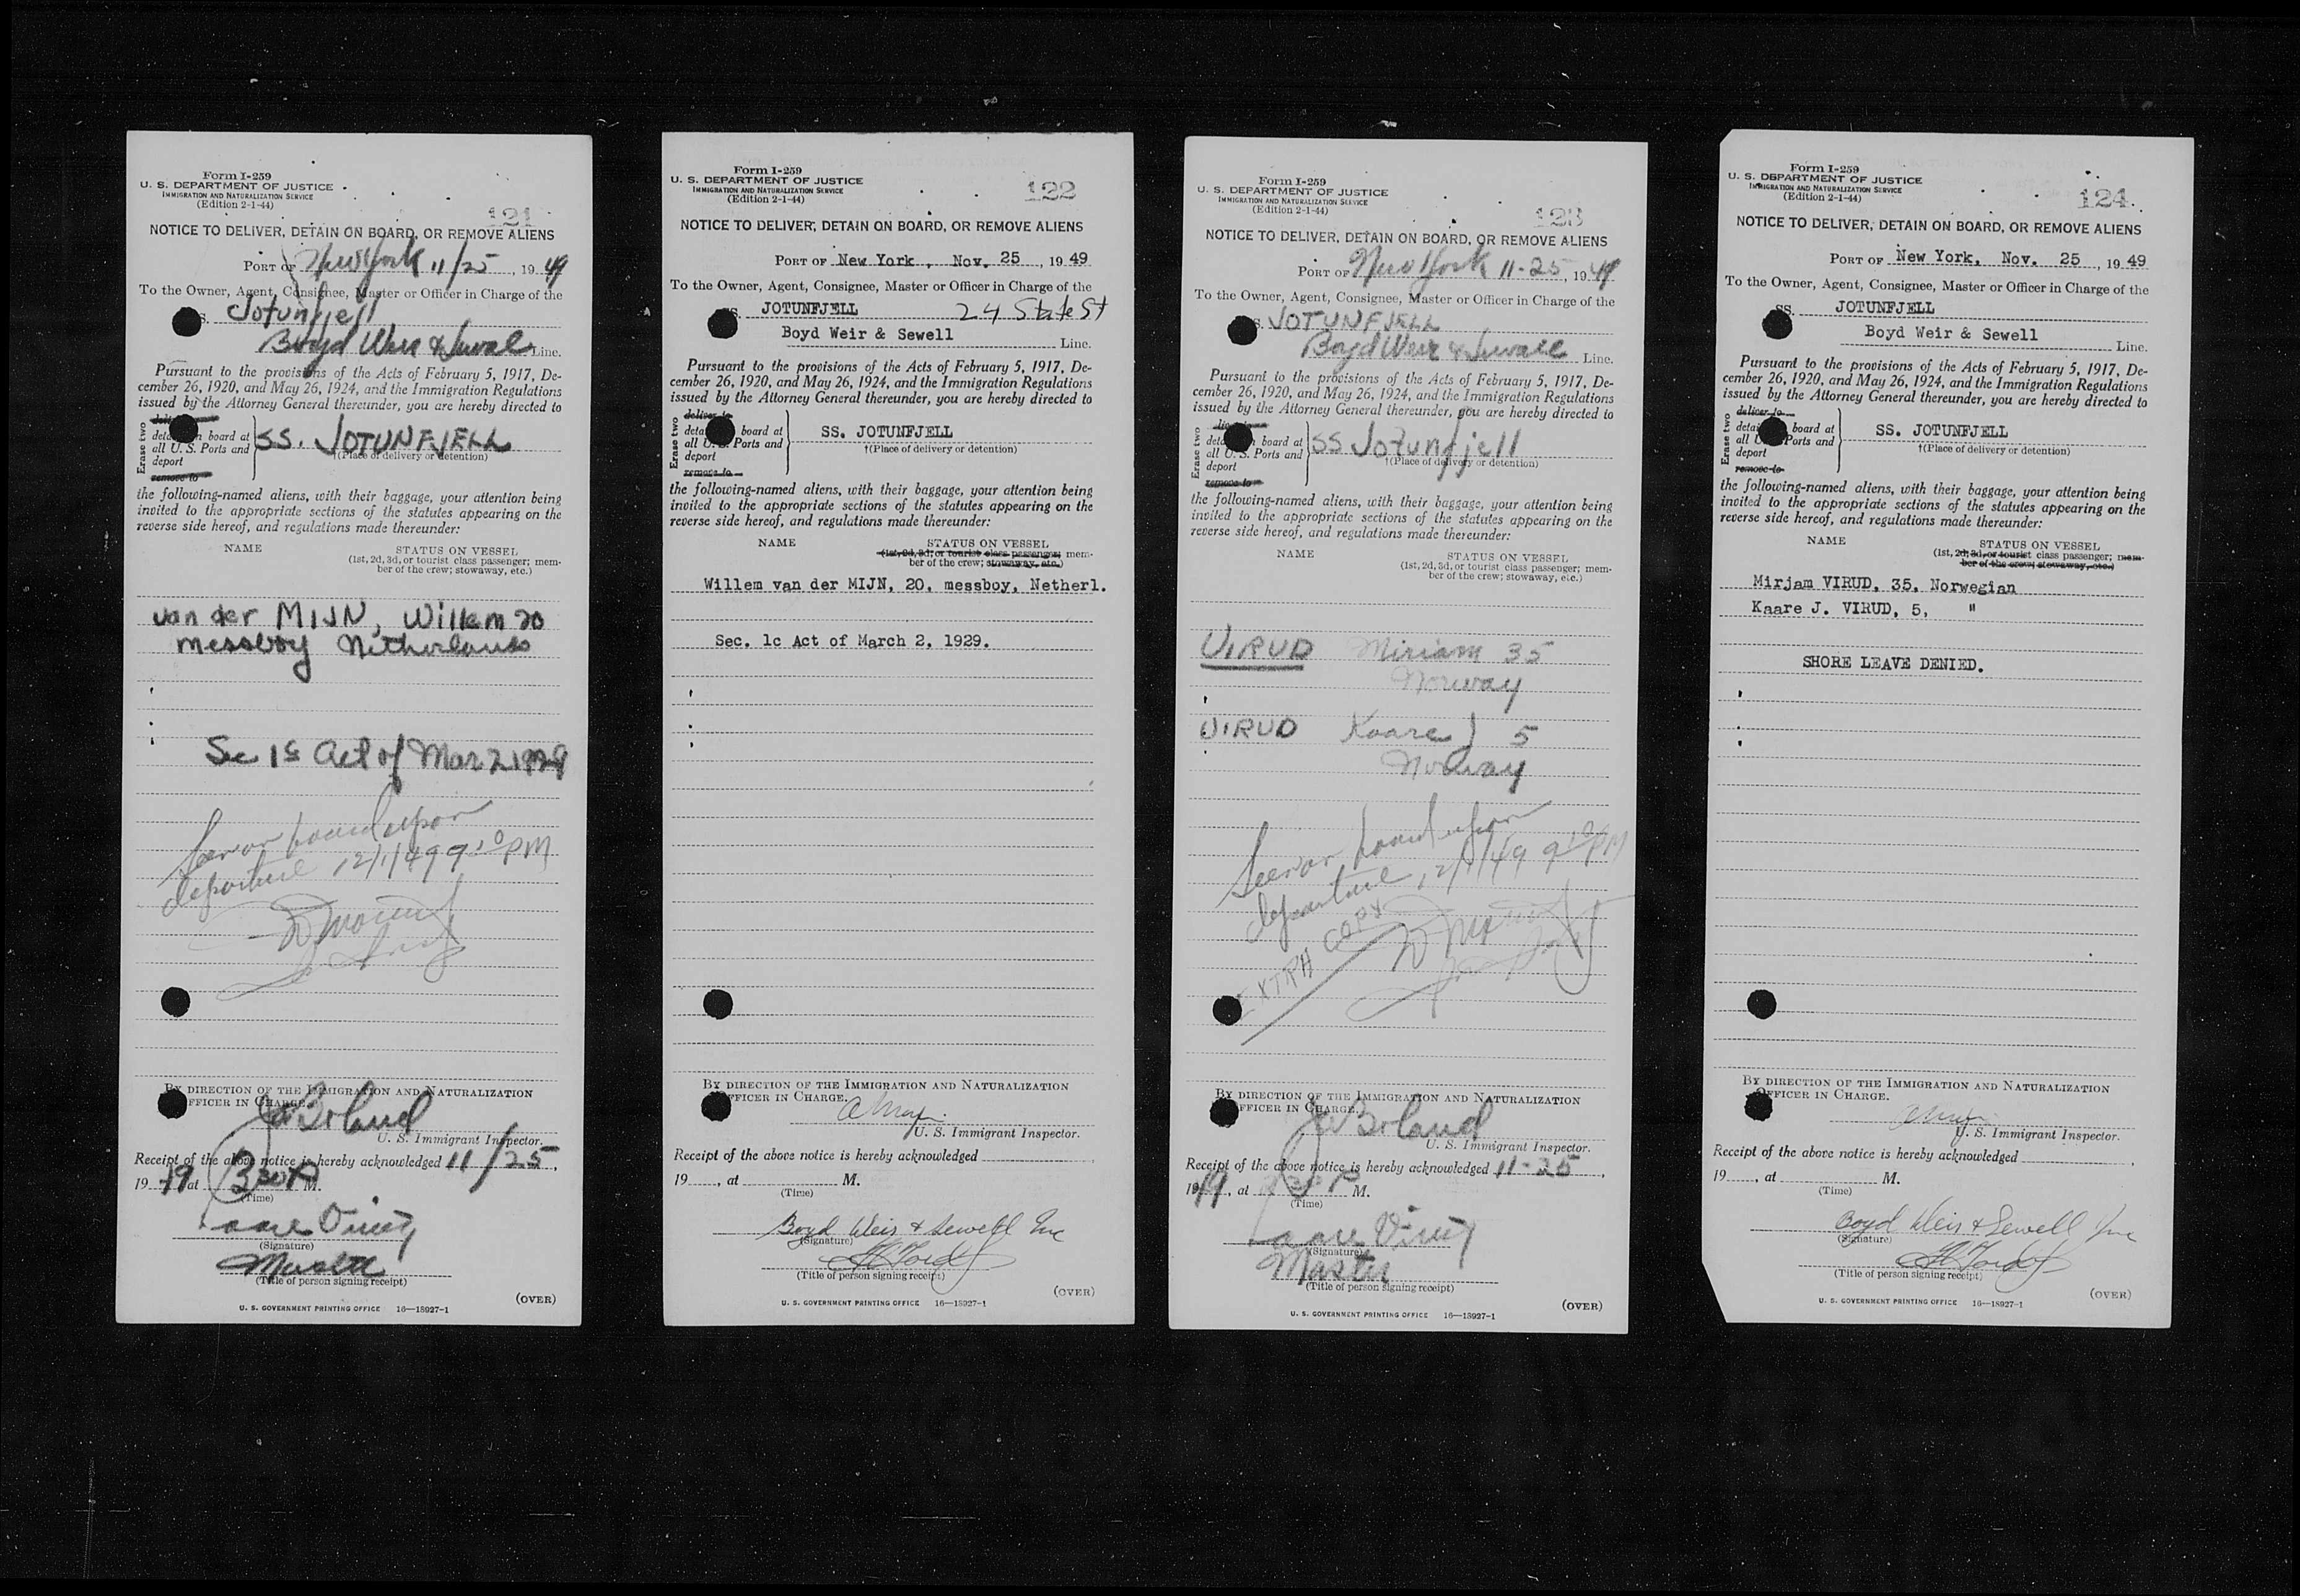 Form I-259
U. S. DEPARTMENT OF JUSTICE
IMMIGRATION AND NATURALIZATION SERVICE
(Edition 2-1-44)
121
NOTICE TO DELIVER, DETAIN ON BOARD, OR REMOVE ALIENS
PORT OF New York 11/25, 1949
To the Owner, Agent, Consignee, Master or Officer in Charge of the
Jotunfjell
Boyd Weir & Line.
Pursuant to the provisions of the Acts of February 5, 1917, De-
cember 26, 1920, and May 26, 1924, and the Immigration Regulations
issued by the Attorney General thereunder, you are hereby directed to
Erase two
board at
all U. S. Ports and
deport
remove to
SS. JOTUNFJELL
†(Place of delivery or detention)
the following-named aliens, with their baggage, your attention being
invited to the appropriate sections of the statutes appearing on the
reverse side hereof, and regulations made thereunder:
NAME STATUS ON VESSEL
(1st, 2d, 3d, or tourist class passenger; mem-
ber of the crew; stowaway, etc.)
van der MIJN, Willem 20
messboy Netherlands
Sec 1c Act of Mar 2 1929
Seen on board upon
departure 12/1/49 9:10 PM
BY DIRECTION OF THE IMMIGRATION AND NATURALIZATION
OFFICER IN CHARGE.
Borland
U. S. Immigrant Inspector.
Receipt of the above notice is hereby acknowledged 11/25,
1949 at 3 30 P M.
(Time)
(Signature)
Master
(Title of person signing receipt)
(OVER)
U. S. GOVERNMENT PRINTING OFFICE 16—18927-1
Form I-259
U. S. DEPARTMENT OF JUSTICE
IMMIGRATION AND NATURALIZATION SERVICE
(Edition 2-1-44)
122
NOTICE TO DELIVER, DETAIN ON BOARD, OR REMOVE ALIENS
PORT OF New York, Nov. 25, 1949
To the Owner, Agent, Consignee, Master or Officer in Charge of the
SS. JOTUNFJELL 24 State St
Boyd Weir & Sewell Line.
Pursuant to the provisions of the Acts of February 5, 1917, De-
cember 26, 1920, and May 26, 1924, and the Immigration Regulations
issued by the Attorney General thereunder, you are hereby directed to
Erase two
deliver to
board at
all U. S. Ports and
deport
remove to
SS. JOTUNFJELL
†(Place of delivery or detention)
the following-named aliens, with their baggage, your attention being
invited to the appropriate sections of the statutes appearing on the
reverse side hereof, and regulations made thereunder:
NAME STATUS ON VESSEL
(1st, 2d, 3d, or tourist class passenger; mem-
ber of the crew; stowaway, etc.)
Willem van der MIJN, 20, messboy, Netherl.
Sec. 1c Act of March 2, 1929.
BY DIRECTION OF THE IMMIGRATION AND NATURALIZATION
OFFICER IN CHARGE.
U. S. Immigrant Inspector.
Receipt of the above notice is hereby acknowledged
19 , at M.
(Time)
Boyd Weir & Sewell Inc
(Signature)
(Title of person signing receipt)
(OVER)
U. S. GOVERNMENT PRINTING OFFICE 16—18927-1
Form I-259
U. S. DEPARTMENT OF JUSTICE
IMMIGRATION AND NATURALIZATION SERVICE
(Edition 2-1-44)
123
NOTICE TO DELIVER, DETAIN ON BOARD, OR REMOVE ALIENS
PORT OF New York 11-25, 1949
To the Owner, Agent, Consignee, Master or Officer in Charge of the
JOTUNFJELL
Boyd Weir & Line.
Pursuant to the provisions of the Acts of February 5, 1917, De-
cember 26, 1920, and May 26, 1924, and the Immigration Regulations
issued by the Attorney General thereunder, you are hereby directed to
Erase two
board at
all U. S. Ports and
deport
remove to
SS Jotunfjell
†(Place of delivery or detention)
the following-named aliens, with their baggage, your attention being
invited to the appropriate sections of the statutes appearing on the
reverse side hereof, and regulations made thereunder:
NAME STATUS ON VESSEL
(1st, 2d, 3d, or tourist class passenger; mem-
ber of the crew; stowaway, etc.)
VIRUD Miriam 35
Norway
VIRUD Kaare J 5
Norway
Seen on board upon
departure, 12/1/49 9:10 PM
EXTRA COPY
BY DIRECTION OF THE IMMIGRATION AND NATURALIZATION
OFFICER IN CHARGE.
Borland
U. S. Immigrant Inspector.
Receipt of the above notice is hereby acknowledged 11-25,
1949, at P M.
(Time)
(Signature)
Master
(Title of person signing receipt)
(OVER)
U. S. GOVERNMENT PRINTING OFFICE 16—18927-1
Form I-259
U. S. DEPARTMENT OF JUSTICE
IMMIGRATION AND NATURALIZATION SERVICE
(Edition 2-1-44)
124
NOTICE TO DELIVER, DETAIN ON BOARD, OR REMOVE ALIENS
PORT OF New York, Nov. 25, 1949
To the Owner, Agent, Consignee, Master or Officer in Charge of the
SS. JOTUNFJELL
Boyd Weir & Sewell Line.
Pursuant to the provisions of the Acts of February 5, 1917, De-
cember 26, 1920, and May 26, 1924, and the Immigration Regulations
issued by the Attorney General thereunder, you are hereby directed to
Erase two
deliver to
board at
all U. S. Ports and
deport
remove to
SS. JOTUNFJELL
†(Place of delivery or detention)
the following-named aliens, with their baggage, your attention being
invited to the appropriate sections of the statutes appearing on the
reverse side hereof, and regulations made thereunder:
NAME STATUS ON VESSEL
(1st, 2d, 3d, or tourist class passenger; mem-
ber of the crew; stowaway, etc.)
Mirjam VIRUD, 35, Norwegian
Kaare J. VIRUD, 5, "
SHORE LEAVE DENIED.
BY DIRECTION OF THE IMMIGRATION AND NATURALIZATION
OFFICER IN CHARGE.
U. S. Immigrant Inspector.
Receipt of the above notice is hereby acknowledged
19 , at M.
(Time)
Boyd Weir & Sewell Inc
(Signature)
(Title of person signing receipt)
(OVER)
U. S. GOVERNMENT PRINTING OFFICE 16—18927-1